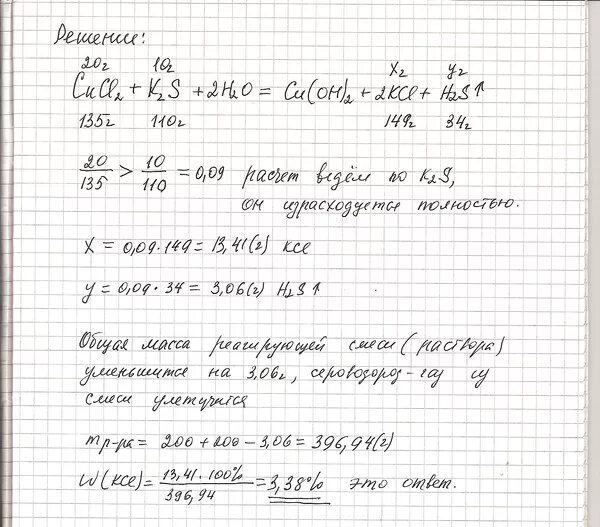 Решение:
20г 10г x г y г
CuCl₂ + K₂S + 2H₂O = Cu(OH)₂ + 2KCl + H₂S↑
135г 110г 149г 34г
20/135 > 10/110 = 0,09 расчет ведём по K₂S,
он израсходуется полностью.
X = 0,09·149 = 13,41(г) KCl
y = 0,09·34 = 3,06(г) H₂S↑
Общая масса реагирующей смеси (раствора)
уменьшится на 3,06г, сероводород-газ из
смеси улетучится
mр-ра = 200 + 200 - 3,06 = 396,94(г)
W(KCl) = 13,41·100%/396,94 = 3,38% это ответ.